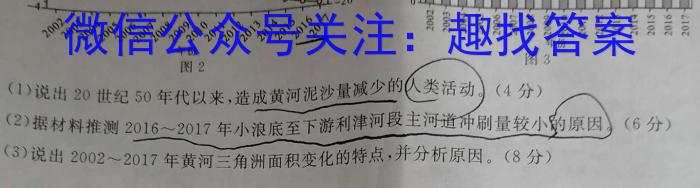 -4 -20
2002 2007 2008 2009 2010 2016 2017
2002 2003 2011 2012 2013 2014 2015 2016 2017
微信公众号关注：趣找答案
图2 图3
(1)说出20世纪50年代以来，造成黄河泥沙量减少的人类活动。(4分)
(2)据材料推测2016～2017年小浪底至下游利津河段主河道冲刷量较小的原因。(6分)
(3)说出2002～2017年黄河三角洲面积变化的特点，并分析原因。(8分)